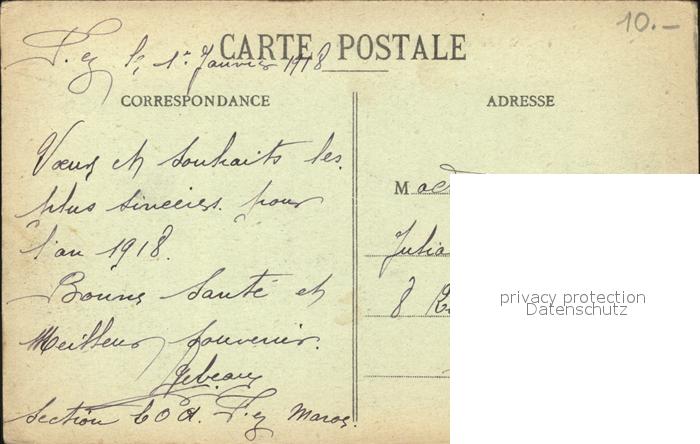 10.-
CARTE POSTALE
Fez le 1er Janvier 1918
CORRESPONDANCE
ADRESSE
Vœux et souhaits les
plus sincères pour
l'an 1918.
Bonne Santé et
Meilleurs souvenirs.
Section C O A. Fez Maroc
M
Julia
8
privacy protection
Datenschutz